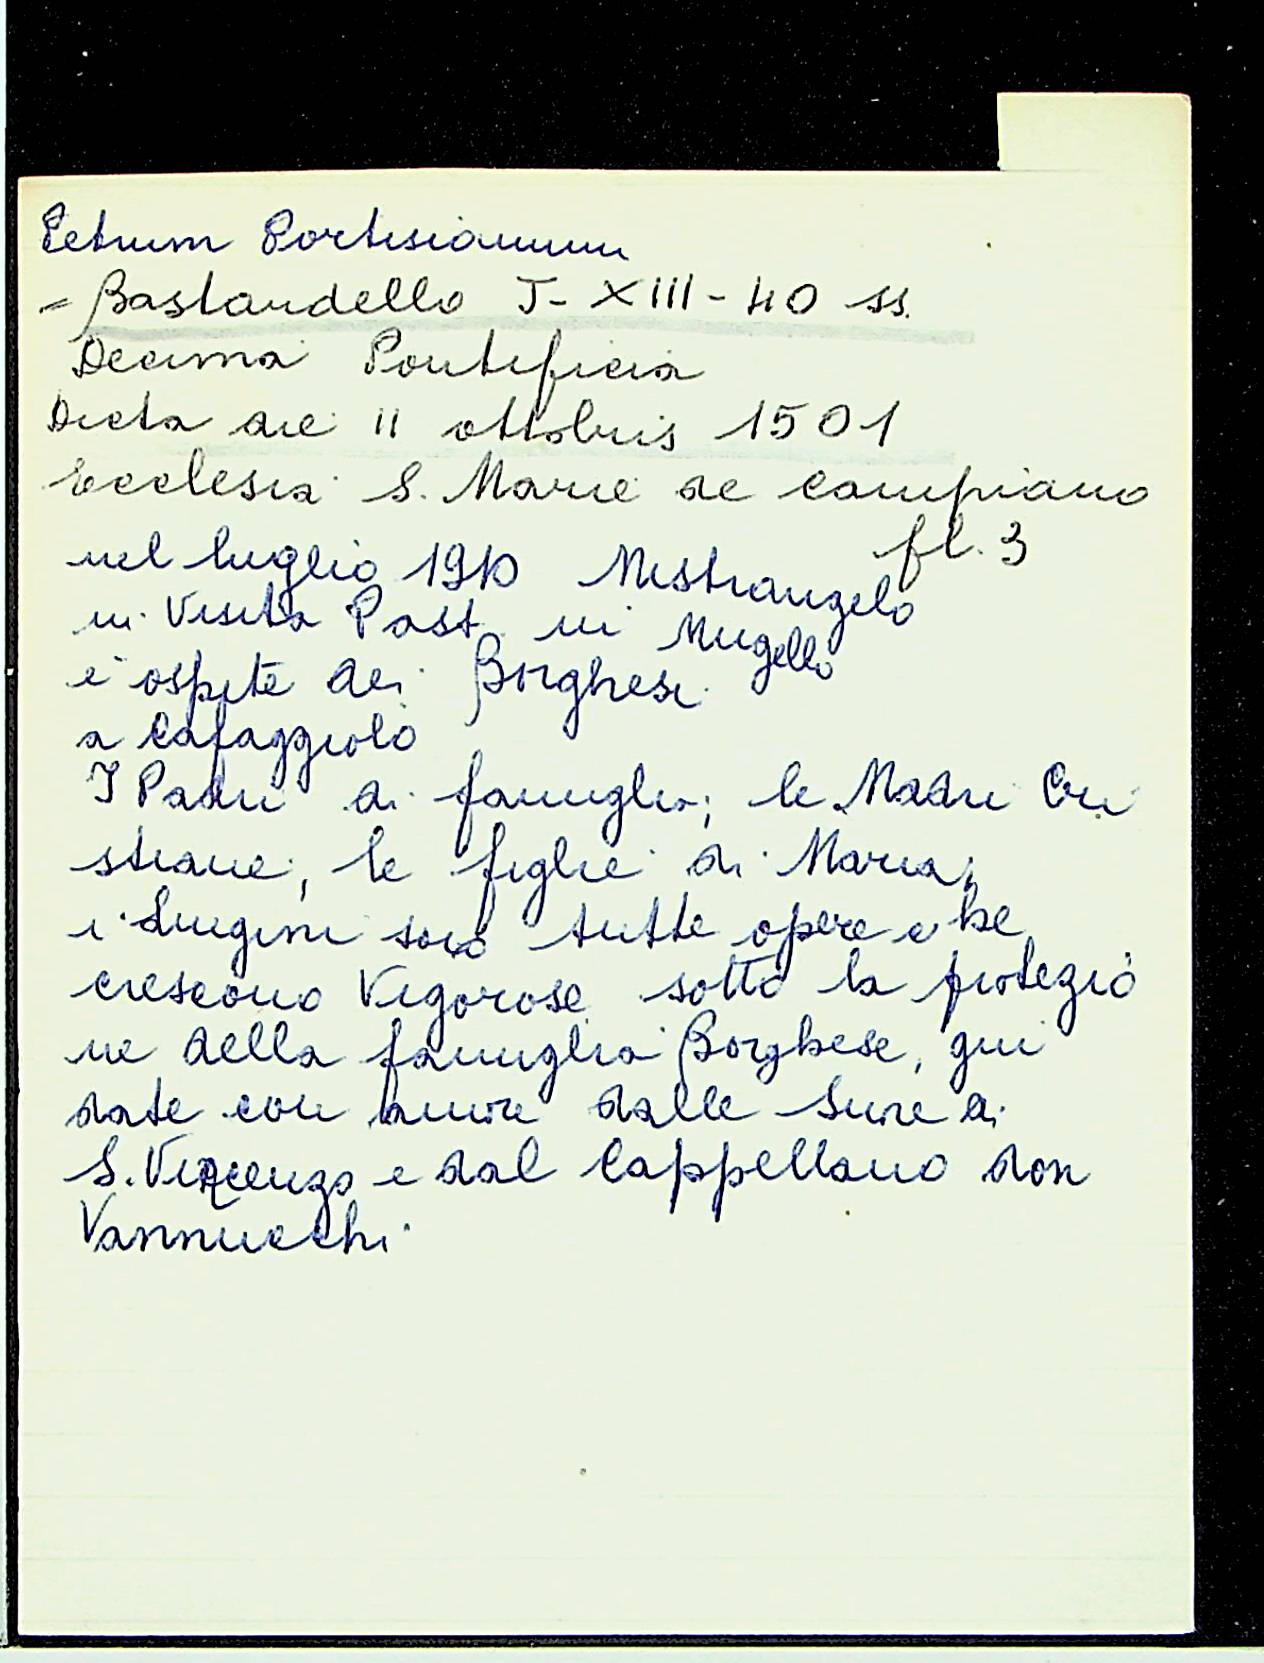 Petrum Portisianum
= Bastardello J - XIII - 40 ss.
Decima Pontificia
Dicta die 11 ottobris 1501
Ecclesia S. Marie de Campiano
fl. 3
nel luglio 1910 Mistrangelo
in Visita Past. in Mugello
è ospite dei Borghesi
a Cafaggiolo
I Padri di famiglia; le Madri Cri
stiane; le figlie di Maria;
i Luigini sono tutte opere che
crescono vigorose sotto la protezio
ne della famiglia Borghese, gui
date con amore dalle Suore di
S. Vincenzo e dal Cappellano don
Vannucchi